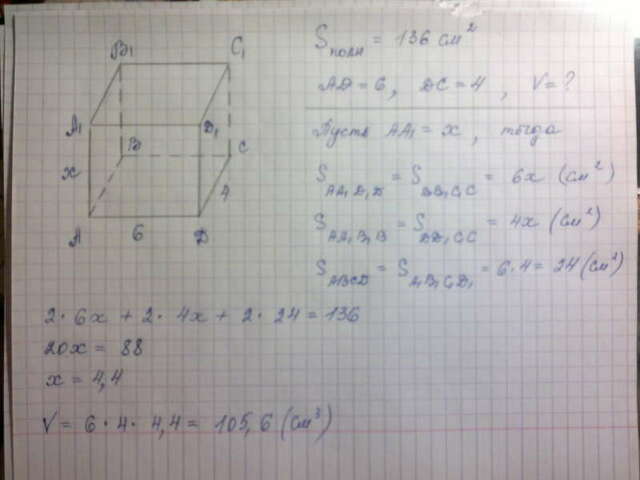 B₁ C₁
A₁ D₁
B C
x
4
A 6 D
Sполн = 136 см²
AD = 6, DC = 4, V = ?
Пусть AA₁ = x, тогда
S AA₁D₁D = S BB₁C₁C = 6x (см²)
S AA₁B₁B = S DD₁C₁C = 4x (см²)
S ABCD = S A₁B₁C₁D₁ = 6·4 = 24 (см²)
2· 6x + 2· 4x + 2· 24 = 136
20x = 88
x = 4,4
V = 6· 4· 4,4 = 105,6 (см³)